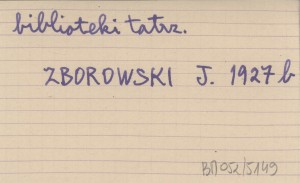 biblioteki tatrz.
ZBOROWSKI J. 1927 b
BП052/5149